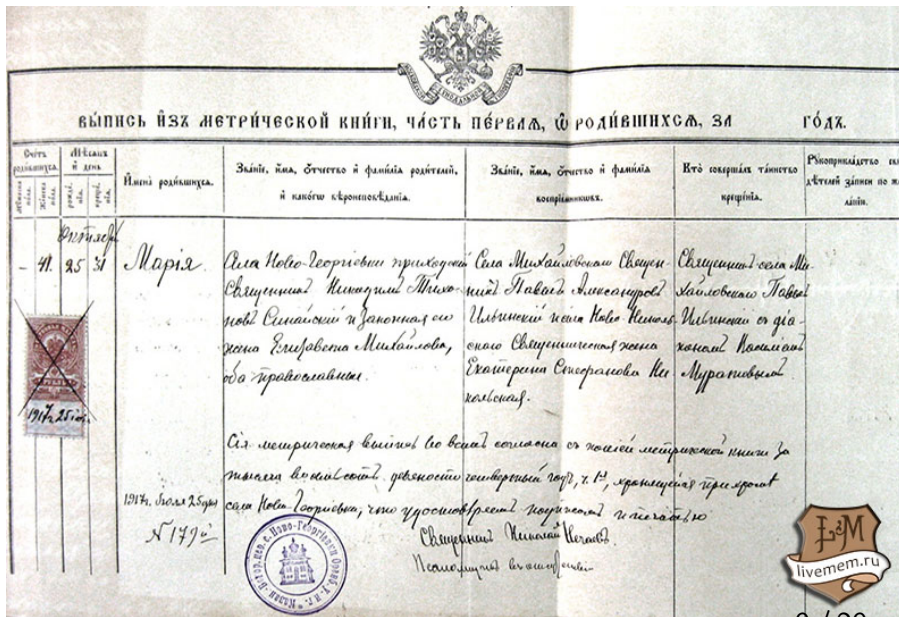 ВЫПИСЬ ИЗЪ МЕТРИЧЕСКОЙ КНИГИ, ЧАСТЬ ПЕРВАЯ, Ѿ РОДИВШИХСЯ, ЗА ГОДЪ.
Счетъ родившихся.
Мѣсяцъ и день
Имена родившихся.
Званіе, имя, отчество и фамилія родителей,
и какого вѣроисповѣданія.
Званіе, имя, отчество и фамилія
воспріемниковъ.
Кто совершалъ таинство
крещенія.
Рукоприкладство
дѣтелей записи по же
ланію.
Октября
- 41. 25 31
Марія.
Села Ново-Георгіевки приходскій
Священникъ Никодимъ Тихо-
новъ Синайскій и законная его
жена Елизавета Михайлова,
оба православные.
Села Михайловскаго Священ-
никъ Павелъ Александровъ
Ильинскій и села Ново-Николь-
скаго Священническая жена
Екатерина Стефанова Ни-
кольская.
Священникъ села Ми-
хайловскаго Павелъ
Ильинскій съ діа-
кономъ
Муратовымъ
1917 25
Сія метрическая выпись во всемъ согласна съ метрической книги за
тысяча восемьсотъ девяносто четвертый годъ, ч. 1я, хранящейся при
села Ново-Георгіевки, что удостовѣряетъ подписомъ и печатью
1917 г. Іюля 25 дня
№ 179
Священникъ Николай
livemem.ru